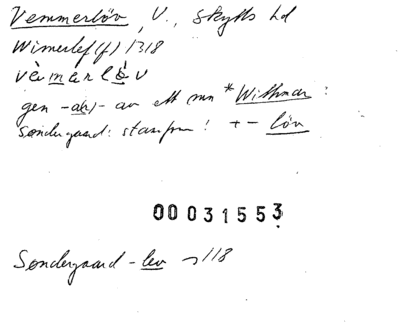 Vemmerlöv, V., Skytts hd
Wimerlef(f) 1318
vèmarlèv
gen -ar- av ett mn *Withmar :
Søndergaard: stamfm! + - löv
00 031553
Søndergaard -lev 118